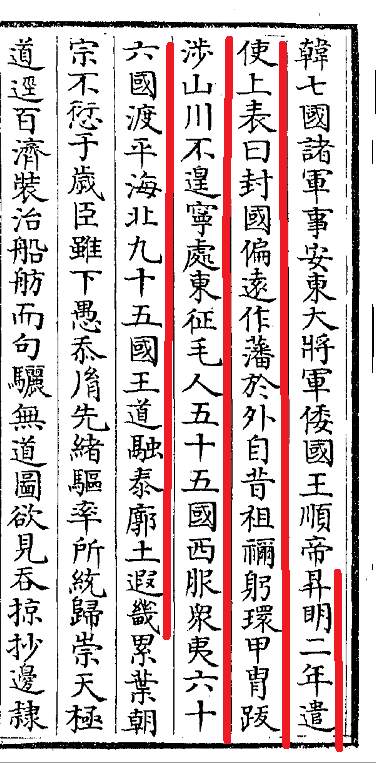 韓七國諸軍事安東大將軍倭國王順帝昇明二年遣
使上表曰封國偏遠作藩於外自昔祖禰躬環甲冑跋
涉山川不遑寧處東征毛人五十五國西服衆夷六十
六國渡平海北九十五國王道融泰廓土遐畿累葉朝
宗不愆于歲臣雖下愚忝胤先緒驅率所統歸崇天極
道逕百濟裝治船舫而句驪無道圖欲見吞掠抄邊隸